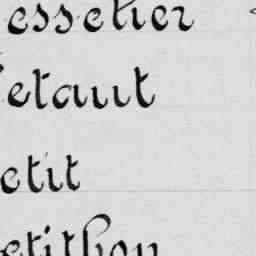 esselier
etaut
etit
etithon